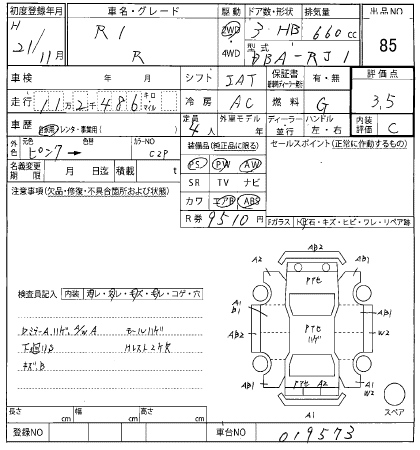 初度登録年月 車名・グレード 駆動 ドア数・形状 排気量 出品NO
H 21/11月 R1 R 2WD 4WD 3 HB 660cc 85
型式 DBA-RJ1
車検 年 月 シフト IAT 保証書 有・無 評価点
走行 11万2千486 キロ マイル 冷房 AC 燃料 G 3.5
車歴 自家用・レンタ・事業用( ) 定員 4人 外車モデル 年 ディーラー・並行 ハンドル 左・右 内装評価 C
外色 元色 ピンク → 色替 カラーNO C2P 装備品(純正品に限る) セールスポイント(正常に作動するもの)
名義変更期限 月 日迄 積載 t PS PW AW
注意事項(欠品・修復・不具合箇所および状態) SR TV ナビ
カワ エアB ABS
R券 9510円 Fガラス 飛石・キズ・ヒビ・ワレ・リペア跡
AB2
A2 AB1
Pアセ
検査員記入 内装 汚レ・スレ・キズ・モレ・コゲ・穴
A1 B1 A1
AB2 W2
Pアセ ハゲ
下廻リB
キズB
AB1 Pアセ A2 A1 W2
A1 スペア
長さ cm 幅 cm 高さ cm
登録NO 車台NO 019573